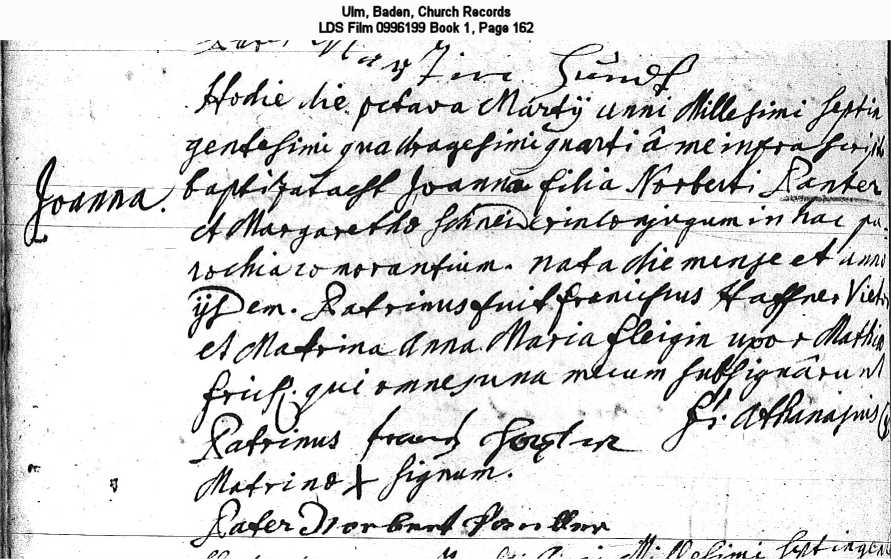 Ulm, Baden, Church Records
LDS Film 0996199 Book 1, Page 162
Hodie die octava Martÿ anni Millesimi septin
gentesimi quadragesimi quarti â me infra scripto
Joanna.
baptizata est Joanna filia Norberti Panter
et Margaretha Schneiderin conjugum in hac pa-
rochia comorantium. nata die mense et anno
ijsdem. Patrinus fuit franciscus Haffner
et Matrina Anna Maria fleigin uxor
frisch qui omnes una mecum subsignârunt
fr. Athanasius
Patrinus frantz
Matrina X signum.
Pater Norbert
Millesimi septingen